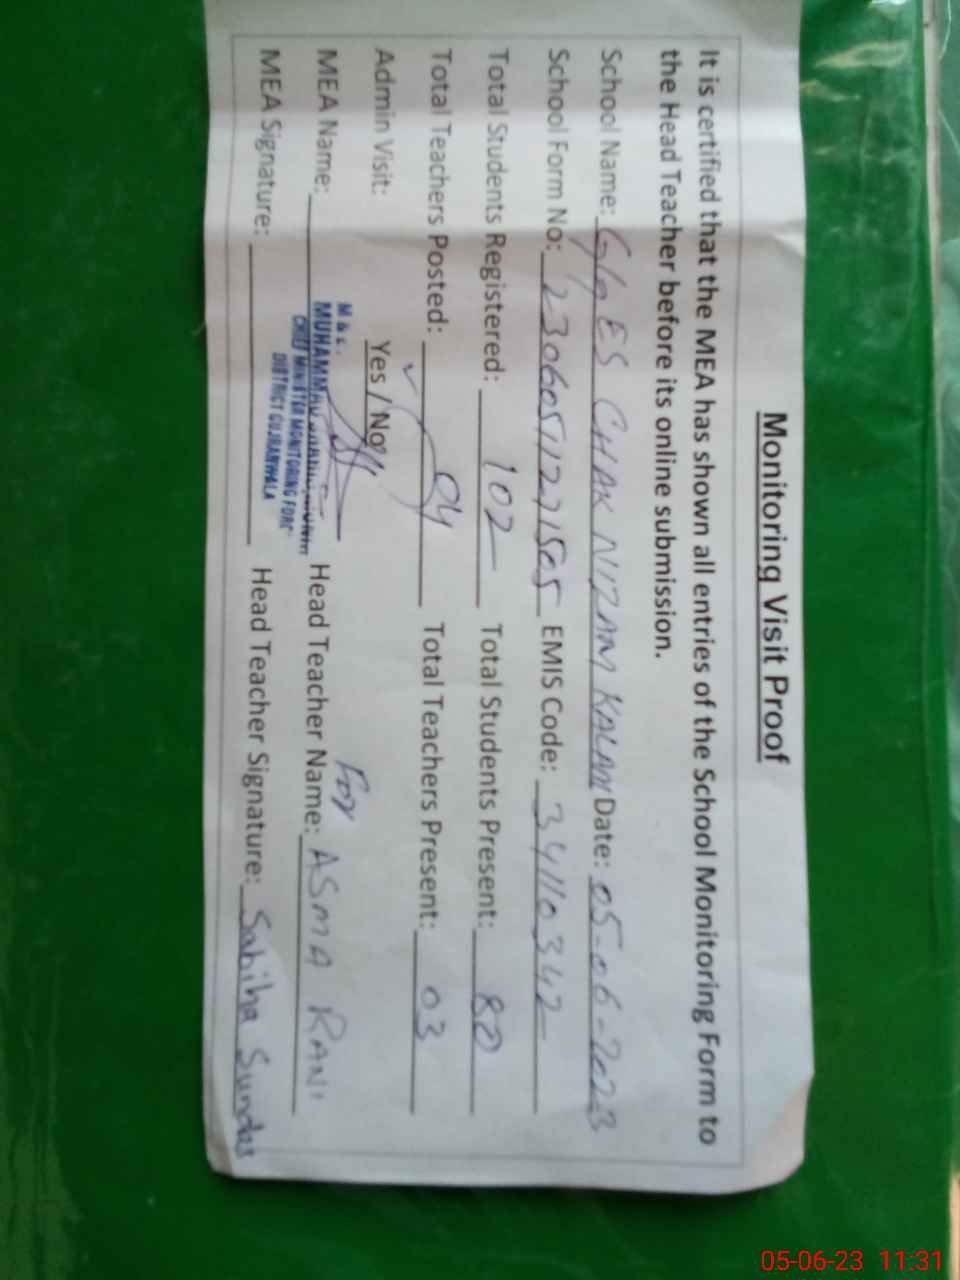 Monitoring Visit Proof
It is certified that the MEA has shown all entries of the School Monitoring Form to
the Head Teacher before its online submission.
School Name: G/g ES CHAK NIZAM KALAN Date: 05-06-2023
School Form No: 230605112271505 EMIS Code: 34110342
Total Students Registered: 102 Total Students Present: 80
Total Teachers Posted: 04 Total Teachers Present: 03
Admin Visit: Yes / No
MEA Name: Head Teacher Name: For ASMA RANI
M & E.
MUHAMMAD
CHIEF MINISTER MONITORING FORC
DISTRICT GUJRANWALA
MEA Signature: Head Teacher Signature: Sabiha Sundas
05-06-23 11:31